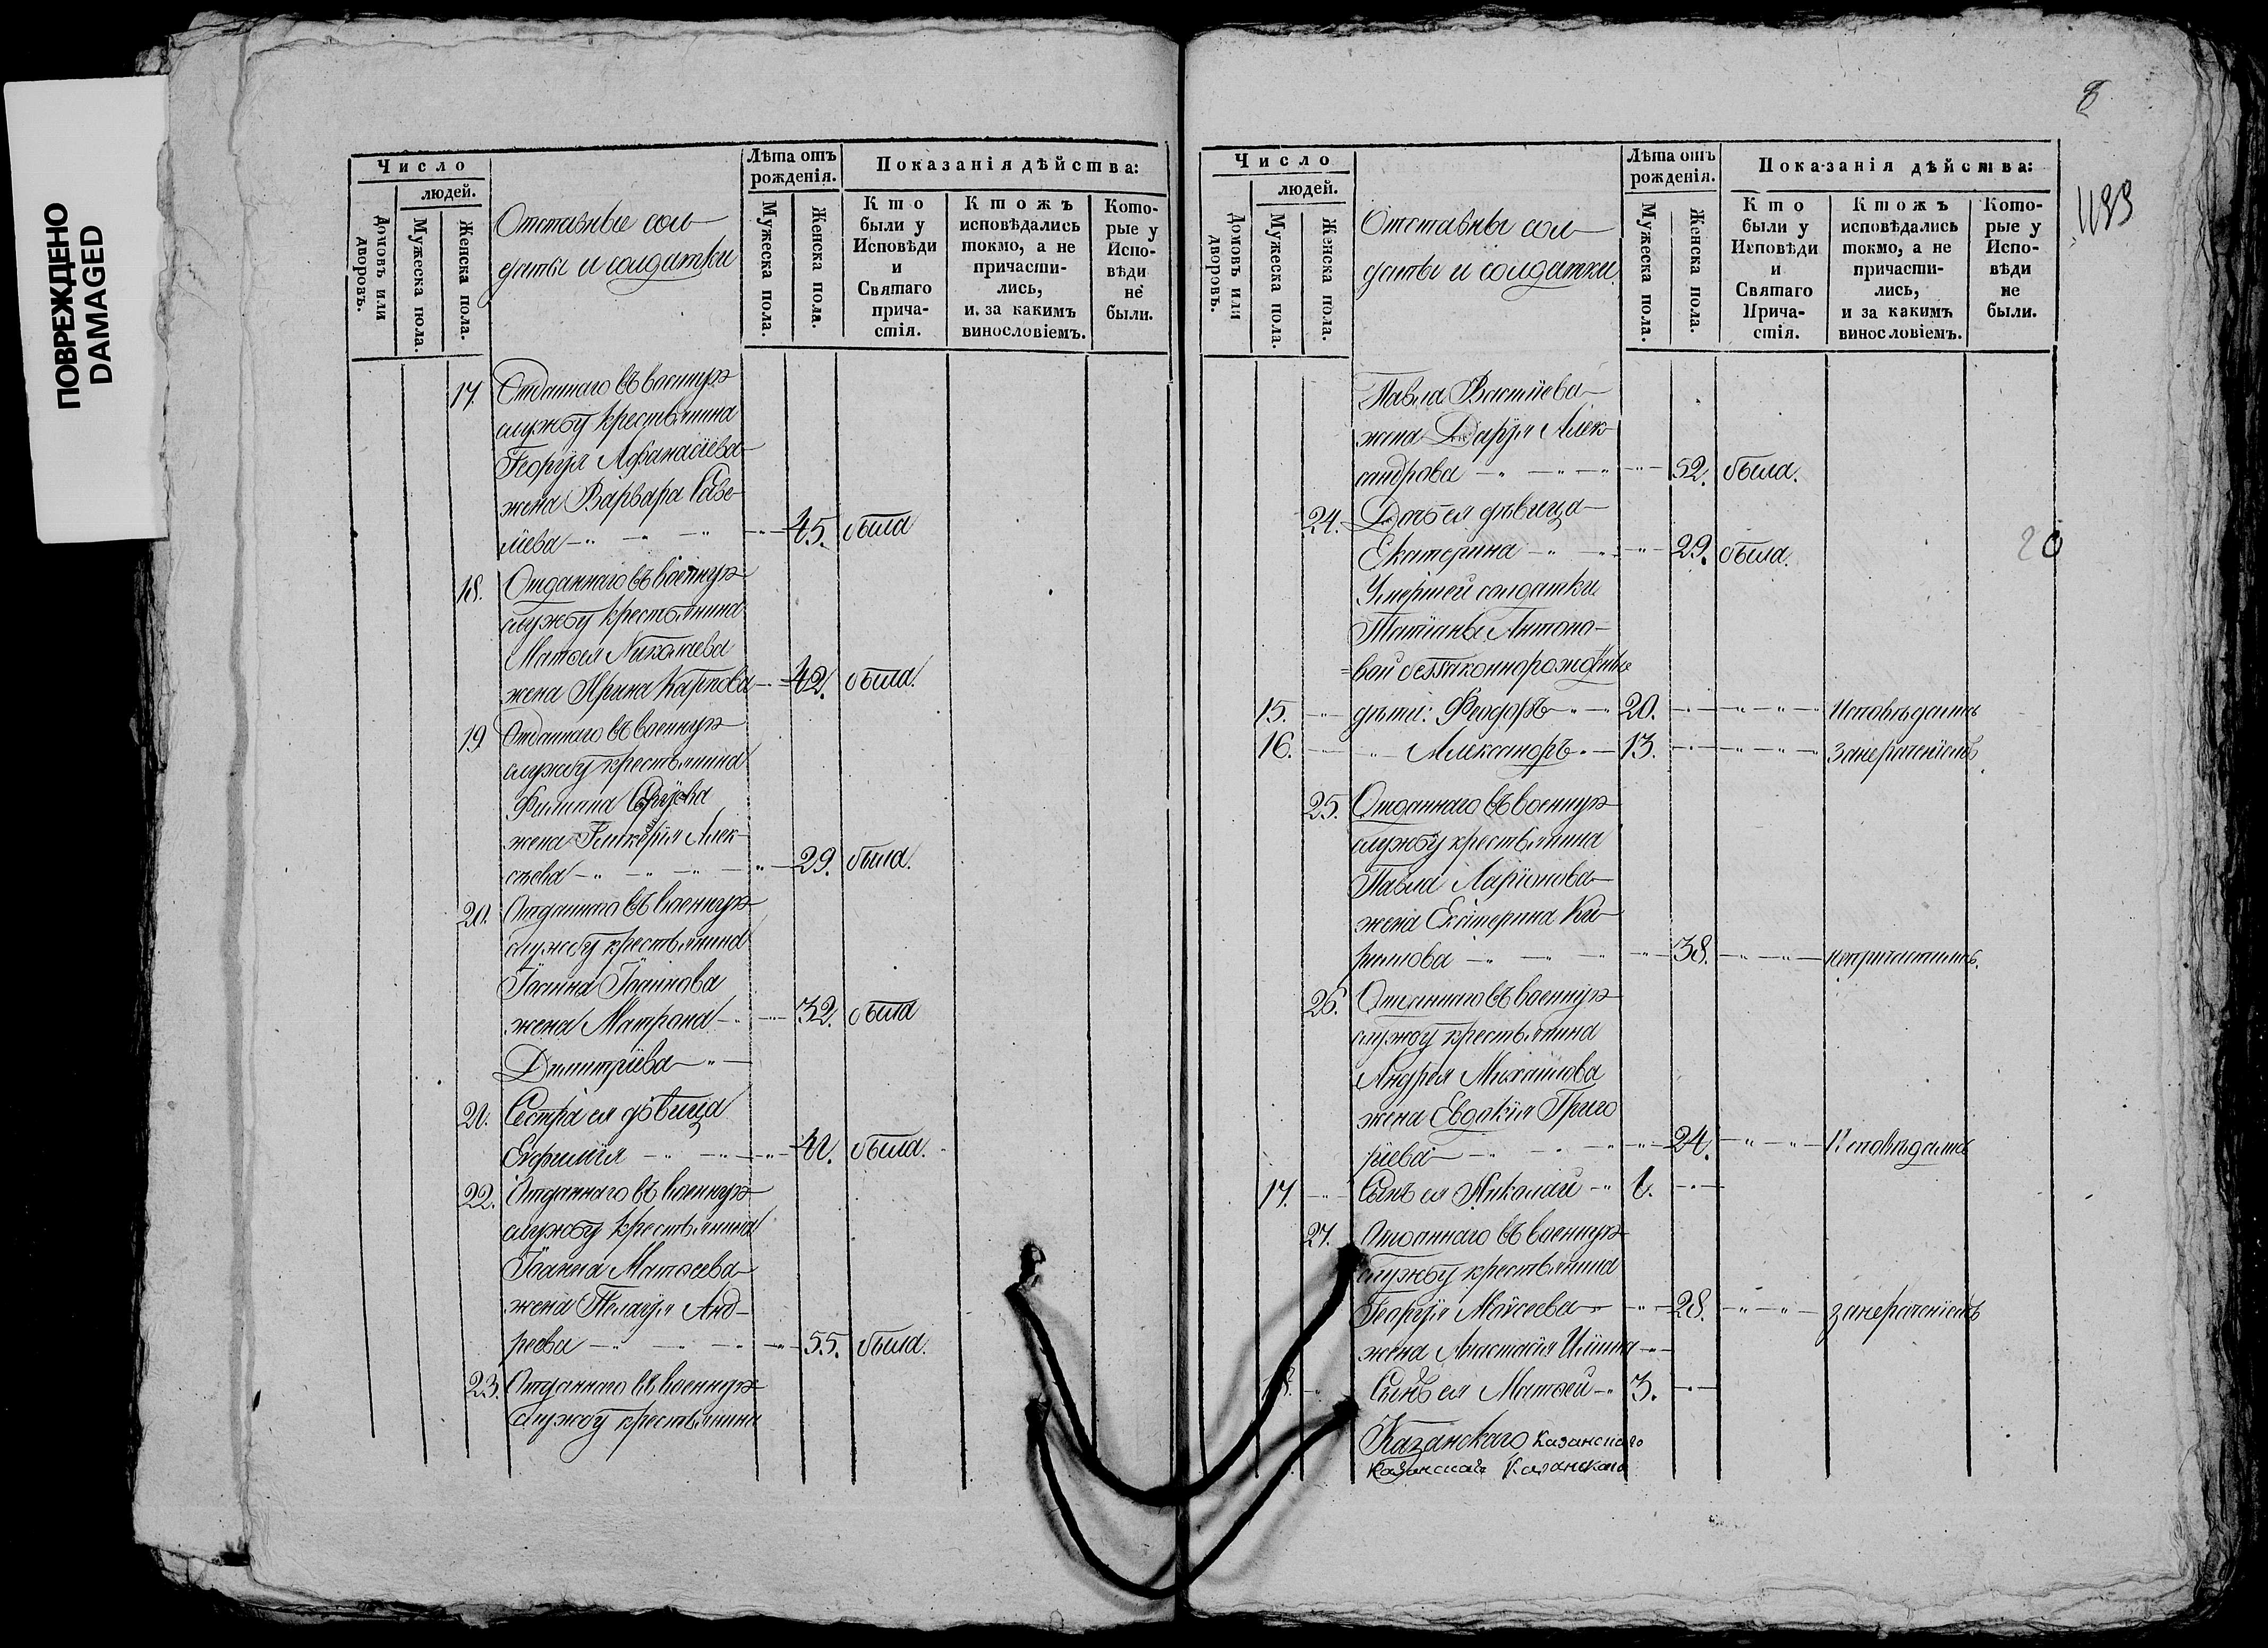 ПОВРЕЖДЕНО
DAMAGED
Число
людей.
Домовъ или дворовъ.
Мужеска пола.
Женска пола.
Отставные сол-
даты и солдатки
Лѣта отъ рожденія.
Мужеска пола.
Женска пола.
Показанія дѣйства:
Кто были у Исповѣди и Святаго прича-стія.
Ктожъ исповѣдались токмо, а не причасти-лись, и за какимъ винословіемъ.
Кото-рые у Испо-вѣди не были.
17. Отданнаго въ военную
службу крестьянина
Георгія Афанасіева
жена Варвара Саве-
ліева 45. была
18. Отданнаго въ военную
службу крестьянина
Матѳея Николаева
жена Ирина Карпова 42. была.
19 Отданнаго въ военную
службу крестьянина
Филиппа
жена Гликерія Алек-
сѣева 29. была.
20. Отданнаго въ военную
службу крестьянина
Іоанна Іоаннова
жена Матрона 32. была
Димитріева
21. Сестра ея дѣвица
Евфимія 41. была.
22. Отданнаго въ военную
службу крестьянина
Іоанна Матѳеева
жена Пелагія Анд-
реева 55. была.
23. Отданнаго въ военную
службу крестьянина
8
1133
20
Число
людей.
Домовъ или дворовъ.
Мужеска пола.
Женска пола.
Отставные сол-
даты и солдатки
Лѣта отъ рожденія.
Мужеска пола.
Женска пола.
Показанія дѣйства:
Кто были у Исповѣди и Святаго Прича-стія.
Ктожъ исповѣдались токмо, а не причасти-лись, и за какимъ винословіемъ.
Кото-рые у Испо-вѣди не были.
Павла
жена Дарія Алек-
сандрова 52. была.
24. Дочь ея дѣвица
Екатерина 29. была.
Умершей солдатки
Татіаны Антоно-
вой беззаконнорожденные
15. дѣти: Феодоръ 20. Исповѣдались
16. Александръ 13. за нераченіемъ
25. Отданнаго въ военную
службу крестьянина
Павла Ларіонова
жена Екатерина Ки-
рилова 38. не причастились.
26. Отданнаго въ военную
службу крестьянина
Андрея Михайлова
жена Евдокія Григо
ріева 24. Исповѣдались
17. Сынъ ея Николай 1.
27. Отданнаго въ военную
службу крестьянина
Георгія Моисеева 28. за нераченіемъ
жена Анастасія Ильина
Сынъ ея Матѳей 3.
Казанскаго Казанскаго
Казанскаго Казанскаго